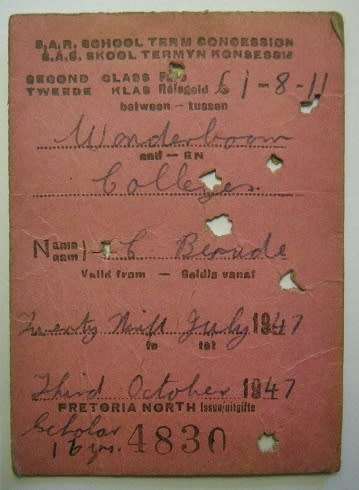 S.A.R. SCHOOL TERM CONCESSION
S.A.S. SKOOL TERMYN KONSESSIE
SECOND CLASS Fare
TWEEDE KLAS Reisgeld £1-8-11
between – tussen
Wonderboom
and – EN
Colleges.
Name
Naam C Berude
Valid from – Geldig vanaf
Twenty Ninth July 1947
to tot
Third October 1947
PRETORIA NORTH Issue/uitgifte
Scholar
16 yrs. 4830